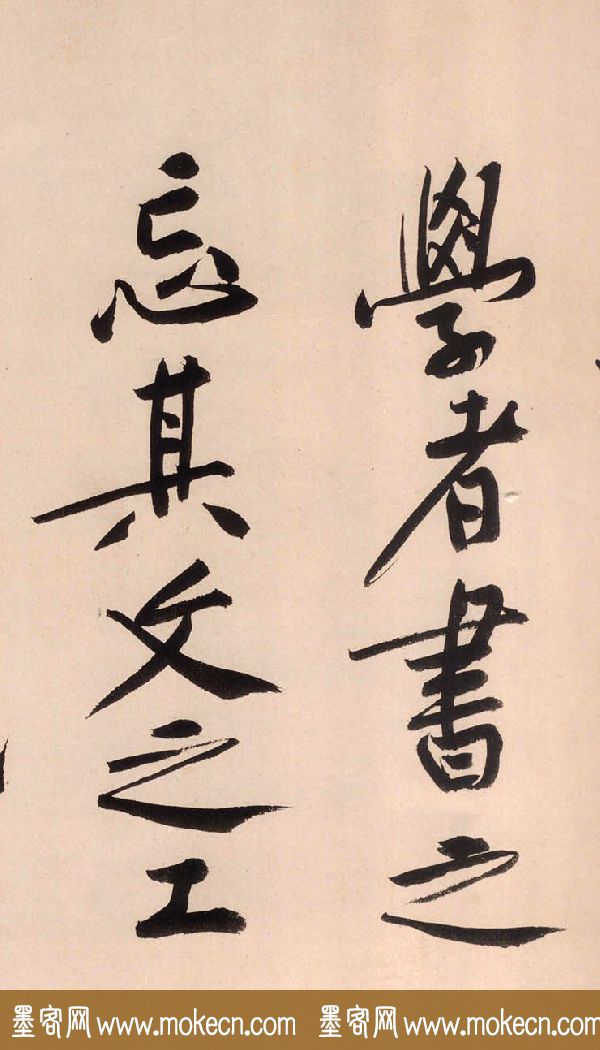 學者書之
忘其文之工
墨客网 www.mokecn.com 墨客网 www.mokecn.com